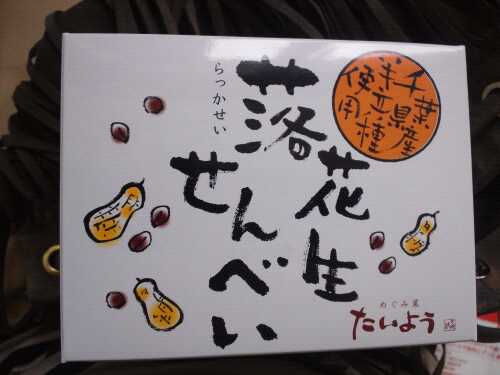 千葉県産
半立種
使用
落花生
らっかせい
せんべい
めぐみ屋
たいよう